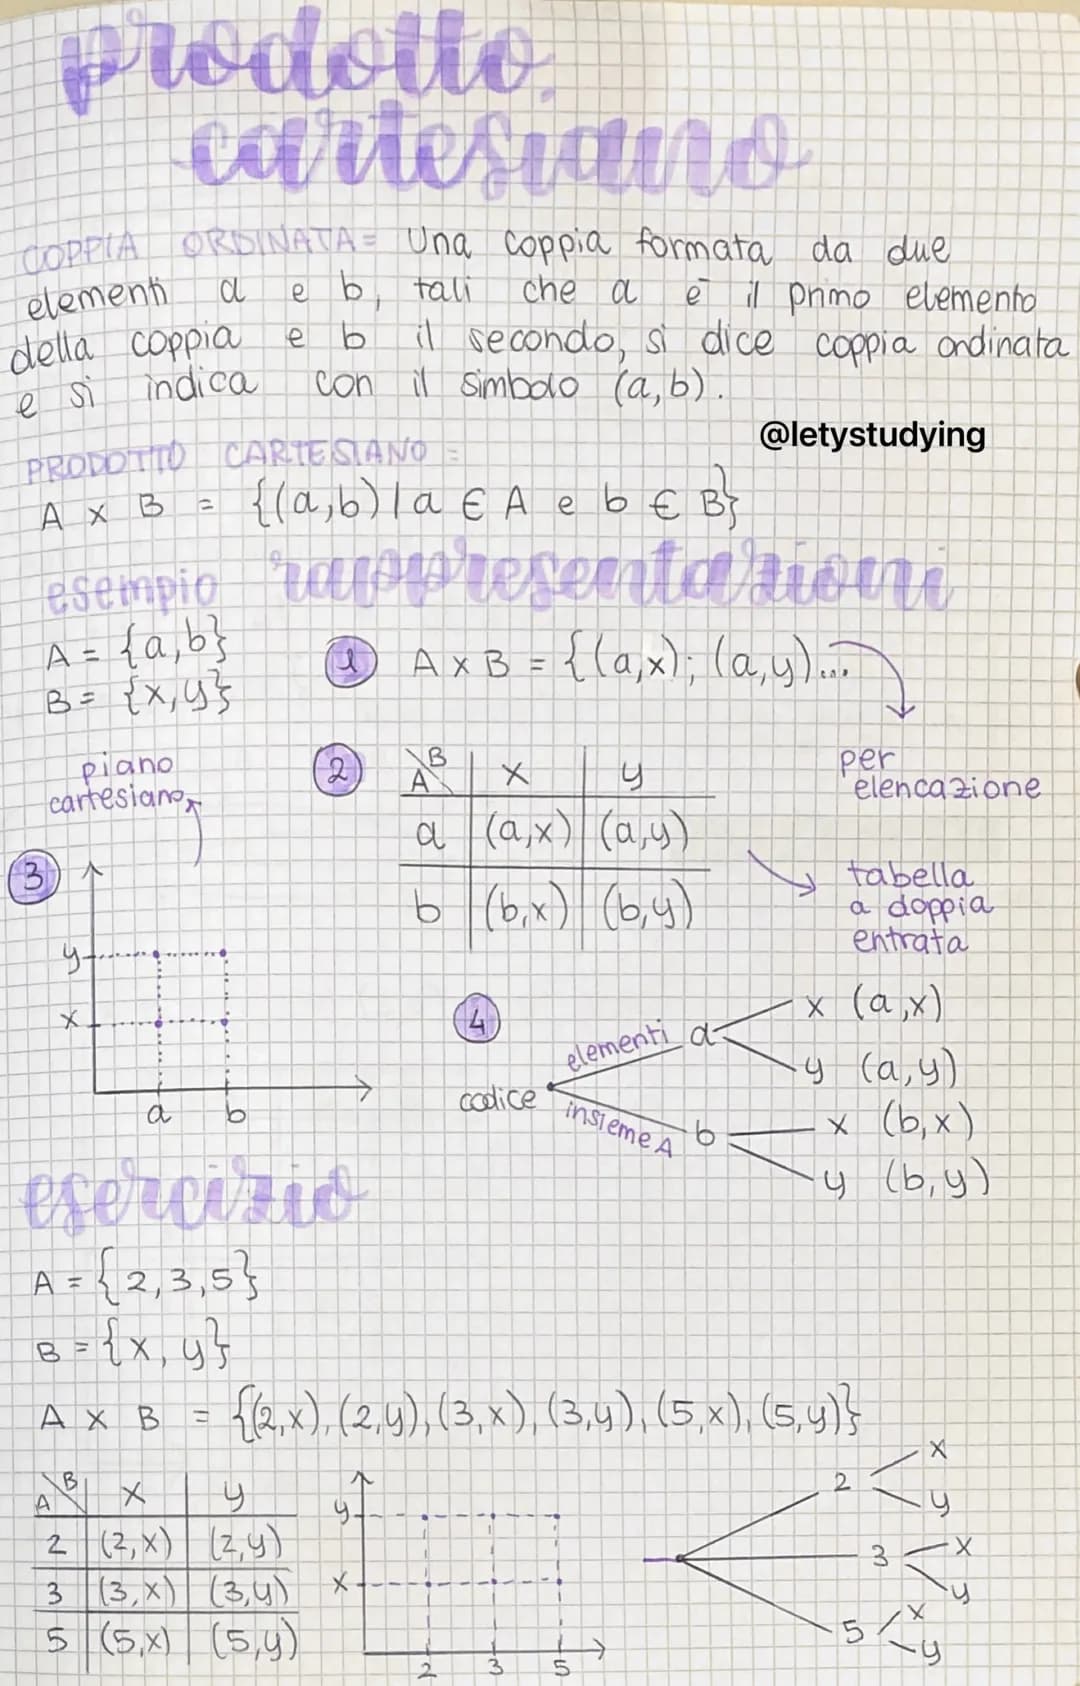 prodotto
cartesiano
COPPIA ORDINATA = Una coppia formata da due
elementi a e b, tali che a è il primo elemento
della coppia e b il secondo, si dice coppia ordinata
e si indica con il simbolo (a,b).
@letystudying
PRODOTTO CARTESIANO =
A x B = {(a,b) | a ∈ A e b ∈ B}
esempio rappresentazioni
A = {a,b}
B = {x,y}
1 A x B = {(a,x); (a,y)...
per
elencazione
2
A\B x y
a (a,x) (a,y)
b (b,x) (b,y)
tabella
a doppia
entrata
piano
cartesiano
3
y
x
a b
4
codice
elementi
insieme A
a x (a,x)
y (a,y)
b x (b,x)
y (b,y)
esercizio
A = {2,3,5}
B = {x, y}
A x B = {(2,x), (2,y), (3,x), (3,y), (5,x), (5,y)}
A\B x y
2 (2,x) (2,y)
3 (3,x) (3,y)
5 (5,x) (5,y)
y
x
2 3 5
2 x
y
3 x
y
5 x
y